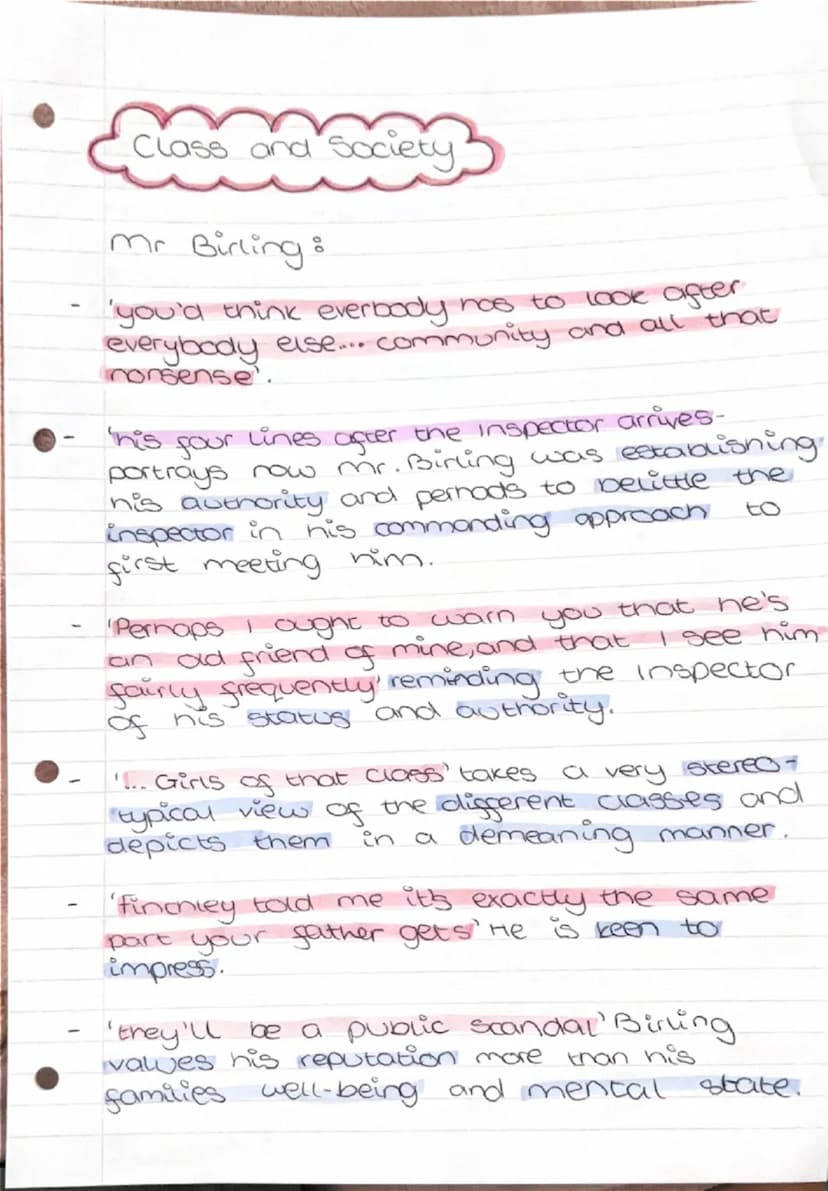 Class and Society
Mr Birling:
- 'you'd think everbody has to look after
everybody else... community and all that
nonsense'.
- 'his four lines after the inspector arrives-
portrays how Mr. Birling was establishing
his authority and perhads to belittle the
inspector in his commanding approach to
first meeting him.
- 'Perhaps I ought to warn you that he's
an old friend of mine, and that I see him
fairly frequently' reminding the Inspector
of his status and authority.
- '... Girls of that class' takes a very stereo-
typical view of the different classes and
depicts them in a demeaning manner.
- 'finchley told me it's exactly the same
port your father gets' He is keen to
impress.
- 'they'll be a public scandal' Birling
values his reputation more than his
families well-being and mental state.